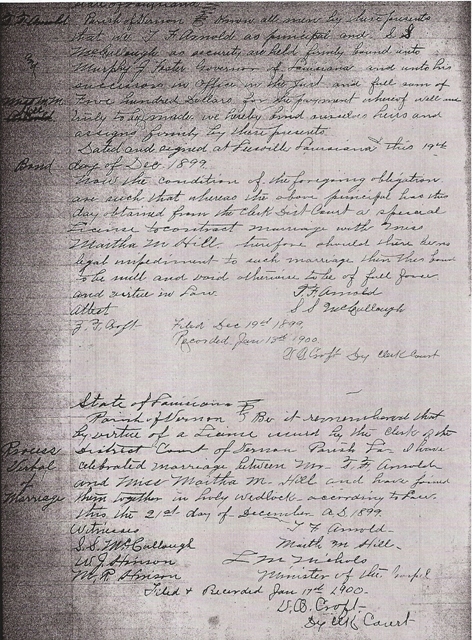 State of Louisiana
T. F. Arnold Parish of Vernon Know all men by these presents
that we T. F. Arnold as principal and S S
McCullough as security are held firmly bound unto
Murphy J Foster Governor of Louisiana and unto his
successors in office in the just and full sum of
five hundred Dollars for the payment whereof well and
truly to be made, we hereby bind ourselves heirs and
assigns firmly by these presents.
Dated and signed at Leesville Louisiana this 19th
Bond day of Dec. 1899.
Now the condition of the foregoing obligation
are such that whereas the above principal has this
day obtained from the Clerk Dist Court a special
License to contract marriage with Miss
Martha M Hill. Therefore should there be no
legal impediment to such marriage then this Bond
to be null and void otherwise to be of full force
and virtue in Law. T. F. Arnold
Attest S. S. McCullough
Croft Filed Dec 19th 1899.
Recorded Jan 1900
Croft Dy Clerk Court
State of Louisiana
Parish of Vernon Be it remembered that
by virtue of a License issued by the Clerk of the
Process District Court of Vernon Parish La. I have
Verbal celebrated marriage between Mr. T. F. Arnold
of and Miss Martha M. Hill and have joined
Marriage them together in holy wedlock according to Law
this the 21st day of December A.D. 1899.
Witnesses T F Arnold.
S. S. McCullough M Hill.
W. J. Hinson L M Nichols
W. R. Hinson Minister of the Gospel
Filed & Recorded Jan 17th 1900.
Croft.
Dy Clk Court